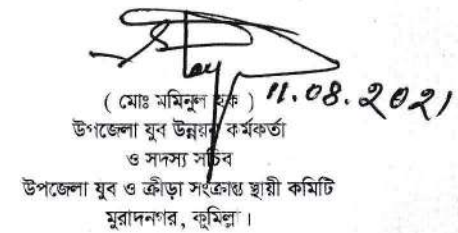 11.08.2021
( মোঃ মমিনুল হক )
উপজেলা যুব উন্নয়ন কর্মকর্তা
ও সদস্য সচিব
উপজেলা যুব ও ক্রীড়া সংক্রান্ত স্থায়ী কমিটি
মুরাদনগর, কুমিল্লা ।